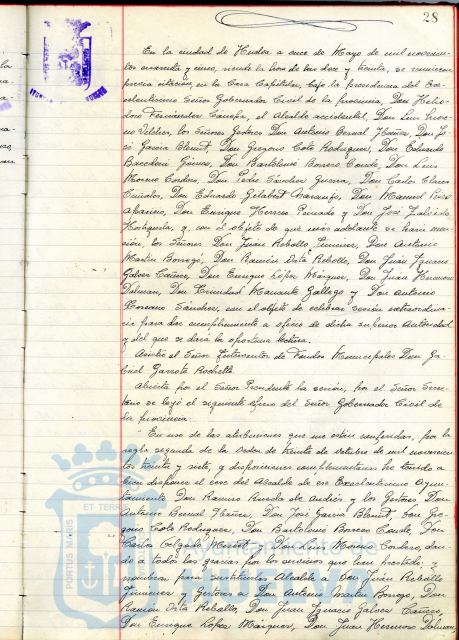 28
En la ciudad de Huelva a once de Mayo de mil novecien-
tos cuarenta y cinco, siendo la hora de las doce y treinta, se reunieron
previa citación, en la Casa Capitular, bajo la presidencia del Ex-
celentísimo Señor Gobernador Civil de la provincia, Don Helio-
doro Fernández Canepa, el Alcalde accidental, Don Luis
los Señores Gestores Don Antonio Bernal Ybáñez, Don Jo-
sé García Blenut, Don Gregorio Coto Rodríguez, Don Eduardo
Gómez, Don Bartolomé Borrero Conde, Don Luis
Moreno Cordero, Don Pedro Sánchez Guerra, Don Carlos
Don Eduardo Gilabert Don Manuel
Aparicio, Don Enrique Herrera y Don José
y con el objeto de que más adelante se hará men-
ción, los Señores Don Juan Rebollo Jiménez, Don Antonio
Martín Borrego, Don Ramón Dota Rebollo, Don Juan Ignacio
Gálvez Cañero, Don Enrique López Márquez, Don Juan Hermoso
Dalman, Don Trinidad Gallego y Don Antonio
Sánchez, con el objeto de celebrar sesión extraordina-
ria para dar cumplimiento a oficio de dicha superior Autoridad
y del que se dará la oportuna lectura.
Asistió el Señor Interventor de Fondos Municipales Don Ga-
briel Garrote
Abierta por el Señor Presidente la sesión, por el Señor Secre-
tario se leyó el siguiente oficio del Señor Gobernador Civil de
la provincia:
En uso de las atribuciones que me están conferidas, por la
regla segunda de la Orden de treinta de Octubre de mil novecien-
tos treinta y siete, y disposiciones complementarias he tenido a
bien disponer el cese del Alcalde de ese Excelentísimo Ayun-
tamiento Don Ramiro y los Gestores Don
Antonio Bernal Ybáñez, Don José García Blenut, Don Gre-
gorio Coto Rodríguez, Don Bartolomé Borrero Conde, Don
Carlos Delgado y Don Luis Moreno Cordero, dan-
do a todos las gracias por los servicios que han prestado; y
nombrar para sustituirlos Alcalde a Don Juan Rebollo
Jiménez y Gestores a Don Antonio Martín Borrego, Don
Ramón Dota Rebollo, Don Juan Ignacio Gálvez Cañero,
Don Enrique López Márquez, Don Juan Hermoso Dalman,
PORTUS MARIS ET TERRE
Ayuntamiento de
HUELVA